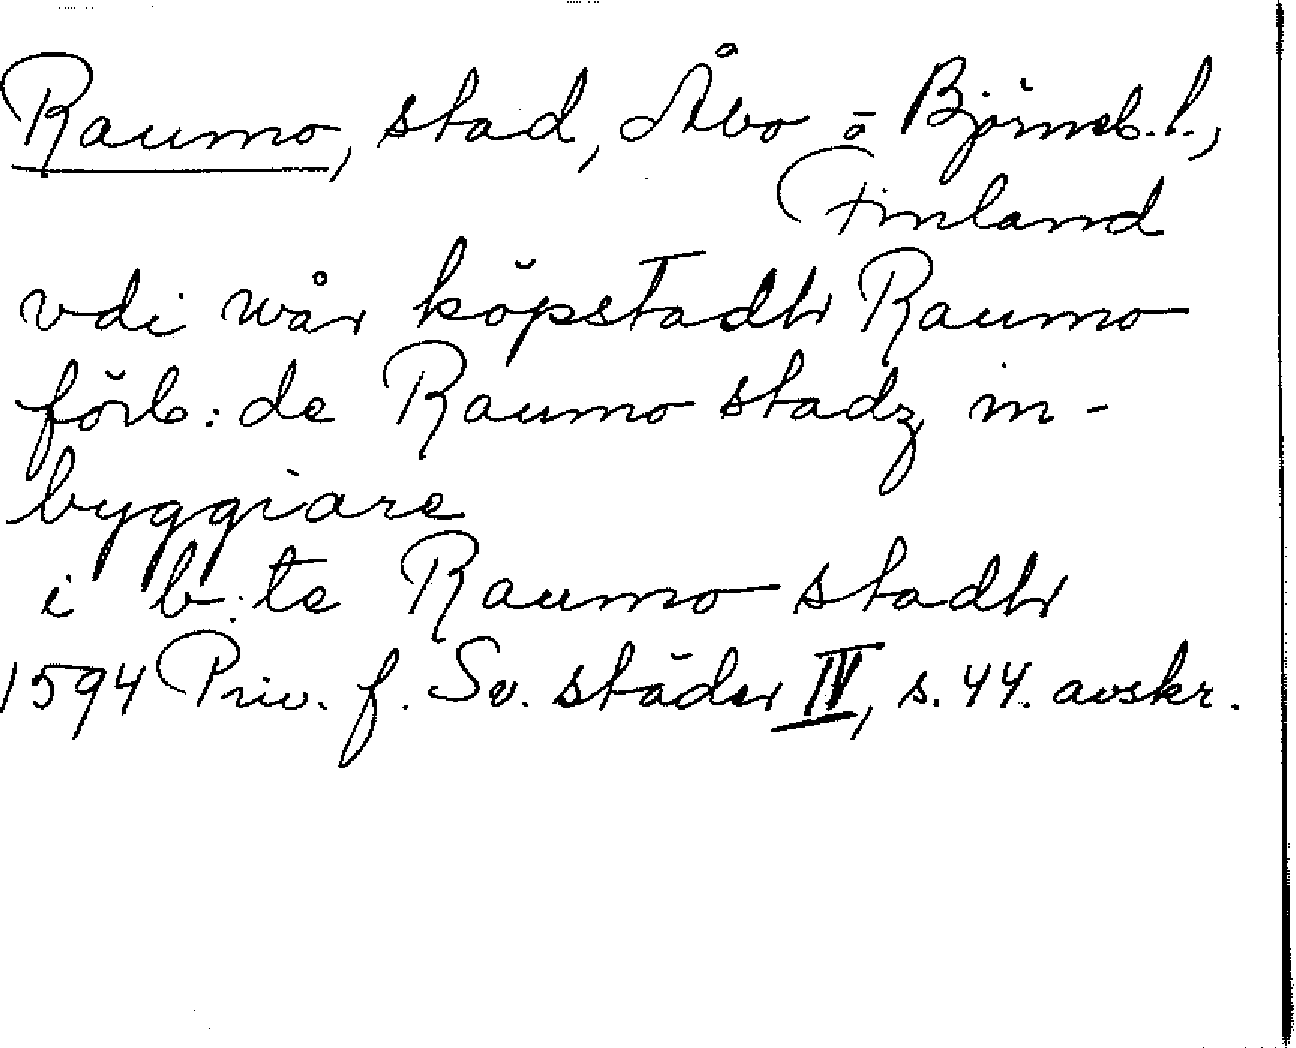 Raumo, stad, Åbo o Björneb. l.,
Finland
vdi wår köpstadh Raumo
förb:de Raumo stadz in-
byggiare
i b:te Raumo stadh
1594 Priv. f. Sv. städer IV, s. 44. avskr.